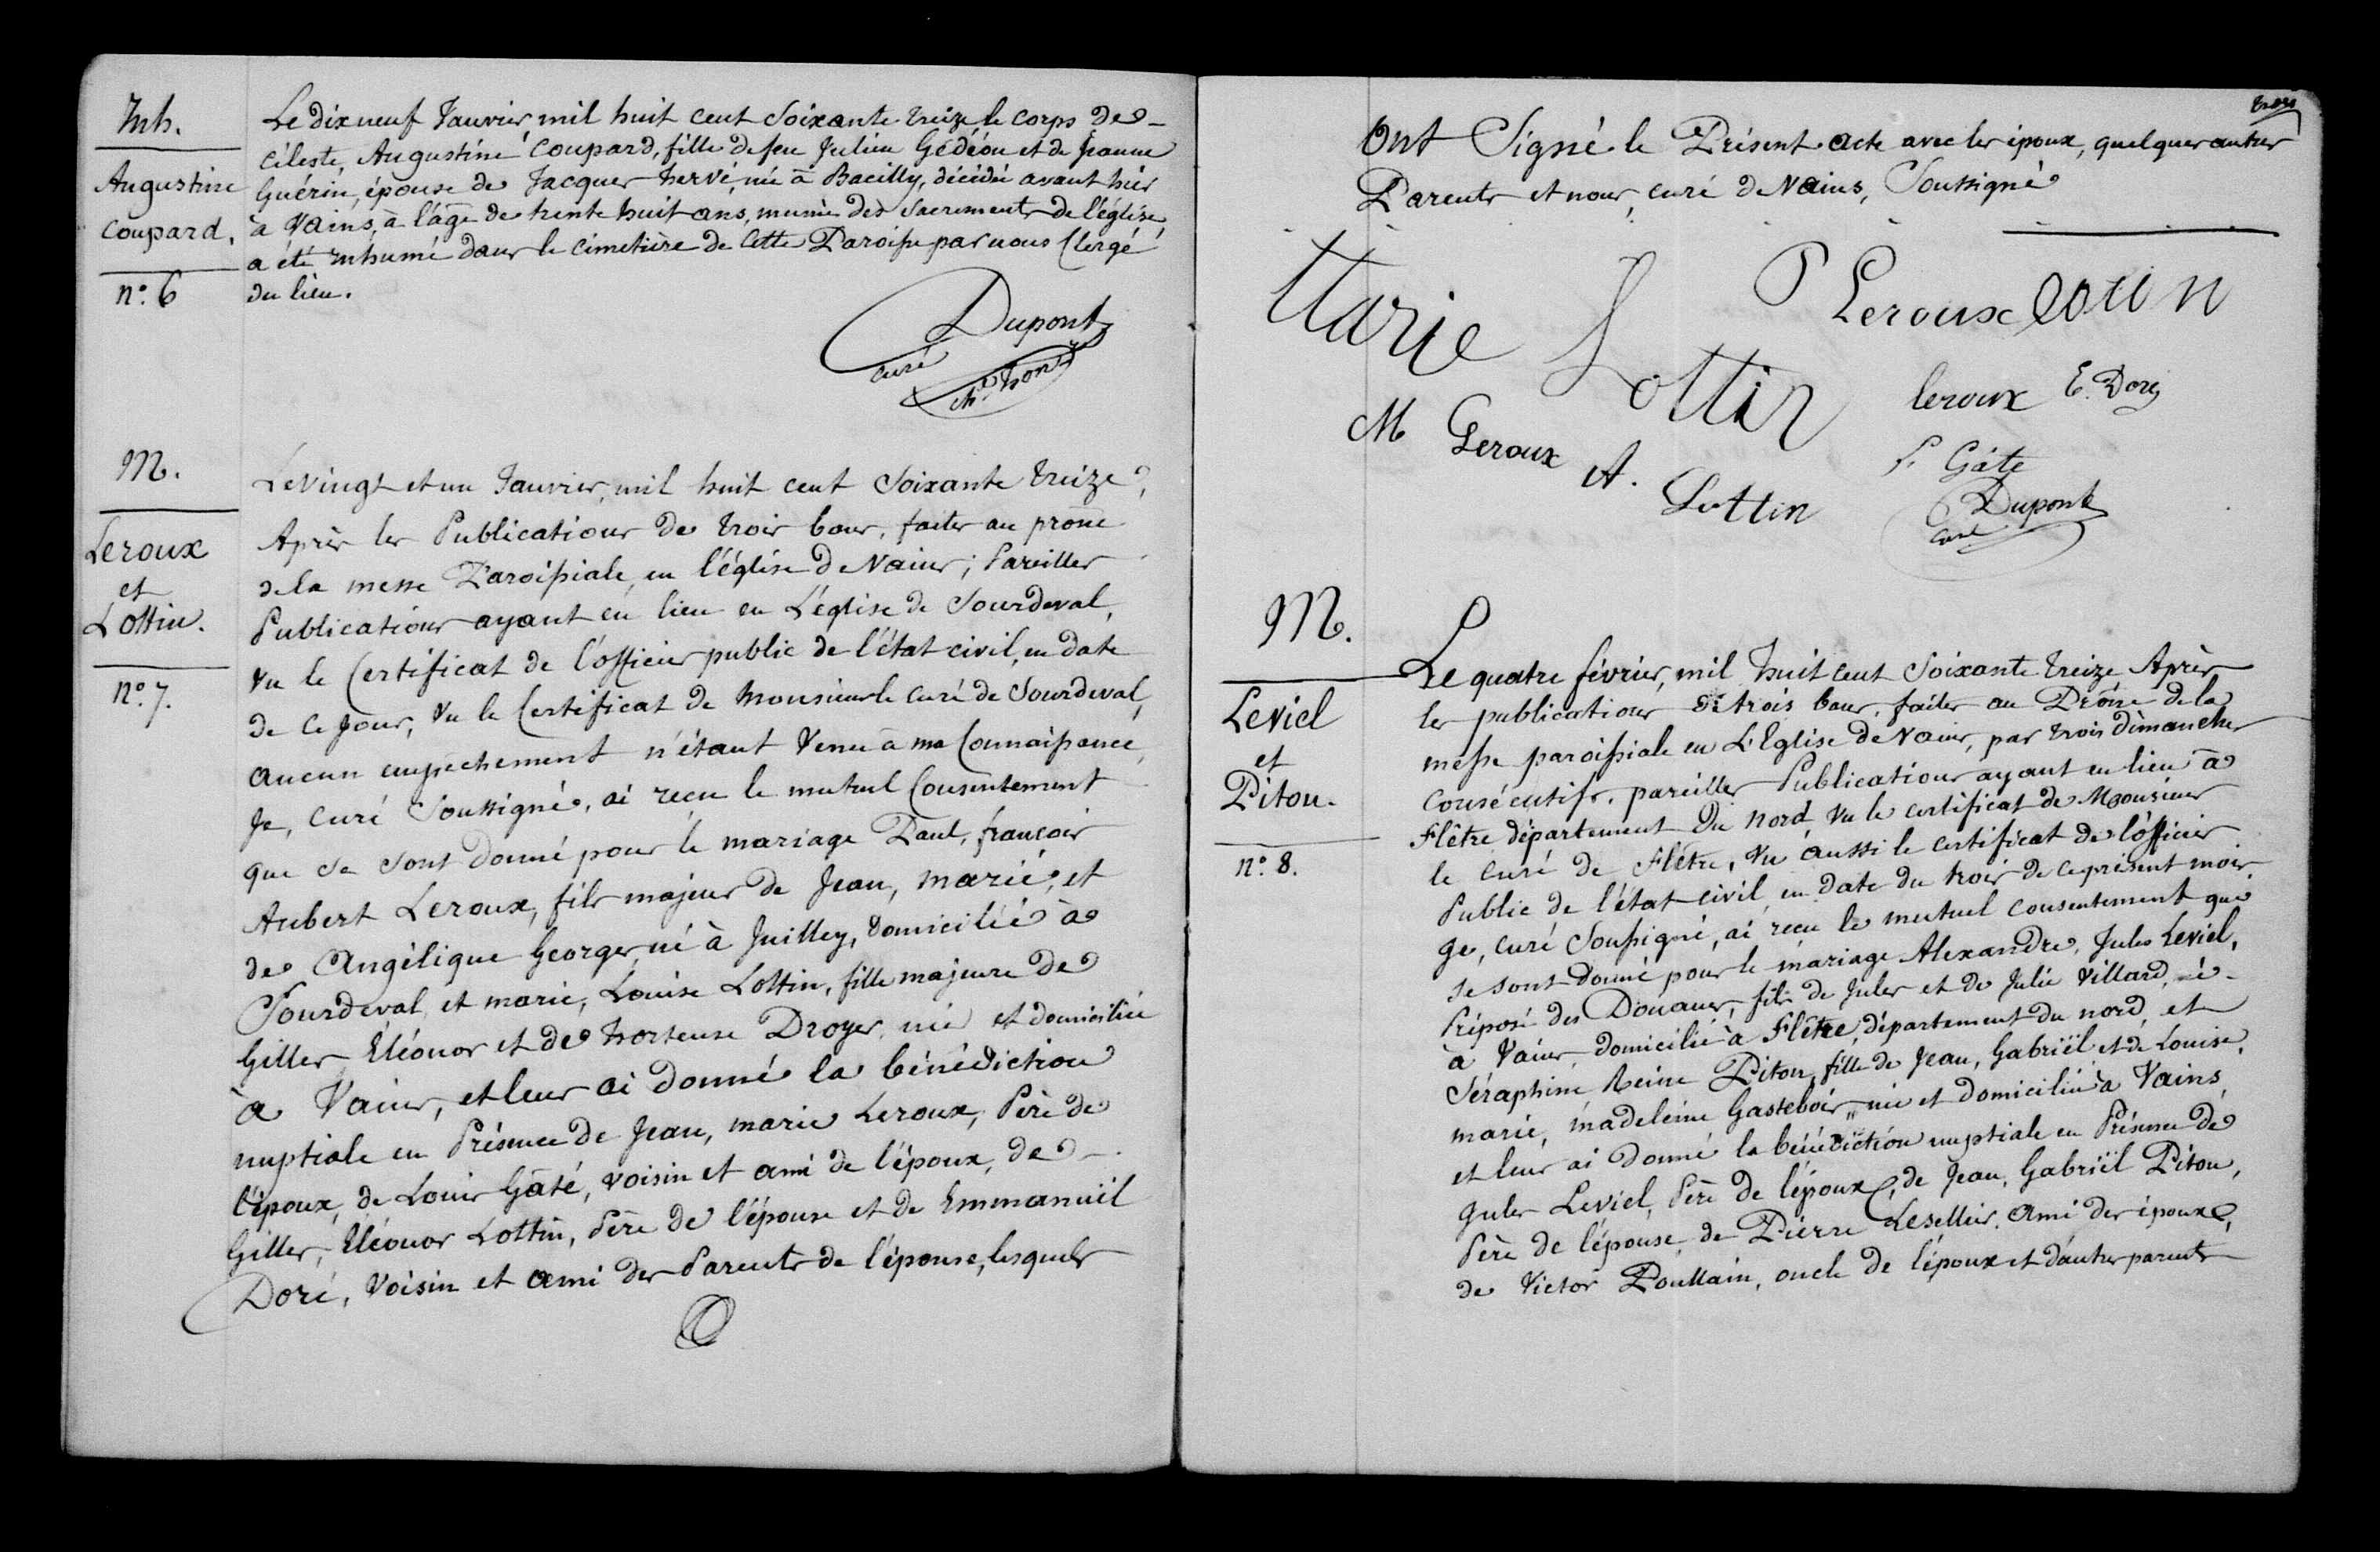 Inh.
Augustine
Coupard.
n°. 6
Le dix neuf Janvier, mil huit cent Soixante treize, le corps de
céleste, Augustine Coupard, fille de feu Julien Gédéon et de Jeanne
Guérin, épouse de Jacques hervé, née à Bacilly, décédée avant hier
à Vains, à l'âge de trente huit ans, munie des Sacrements de l'église,
a été inhumé dans le cimetière de cette Paroisse par nous Clergé
du lieu.
Dupont
curé
ch. hon.
M.
Leroux
et
Lottin.
n°. 7.
Le vingt et un Janvier, mil huit cent Soixante treize,
Après les Publications de trois bans, faites au prône
de la messe Paroissiale, en l'église de Vains; Pareilles
Publications ayant eu lieu en L'église de Sourdeval,
Vu le Certificat de l'officier public de l'état civil, en date
de ce Jour, Vu le Certificat de Monsieur le curé de Sourdeval,
aucun empêchement n'étant Venu à ma Connaissance,
Je, Curé Soussigné, ai reçu le mutuel Consentement
que se sont donné pour le mariage Paul, françois
Aubert Leroux, fils majeur de Jean, marie, et
de Angélique Georges, né à Juilley, domicilié à
Sourdeval, et marie, Louise Lottin, fille majeure de
Gilles, Eléonor et de hortense Droyer, née et domiciliée
à Vains, et leur ai donné la bénédiction
nuptiale en Présence de Jean, marie Leroux, Père de
l'époux, de Louis Gâté, voisin et ami de l'époux, de
Gilles, Eléonor Lottin, Père de l'épouse et de Emmanuël
Doré, Voisin et ami des Parents de l'épouse, lesquels
trois
Ont Signé le Présent acte avec les époux, quelques autres
Parents et nous, curé de Vains, Soussigné
Marie Lottin
P Leroux Lottin
leroux E. Doré
M Leroux
A. Lottin
Gâté
Dupont
curé
M.
Leviel
et
Piton.
n°. 8.
Le quatre février, mil huit cent Soixante treize, Après
les publications de trois bans, faites au Prône de la
messe paroissiale en L'Eglise de Vains, par trois dimanches
consécutifs, pareilles Publications ayant eu lieu à
Flêtre département du nord, Vu le certificat de Monsieur
le curé de Flêtre, Vu aussi le certificat de l'officier
Public de l'état civil, en date du trois de ce présent mois,
Je, curé Soussigné, ai reçu le mutuel consentement que
se sont donné pour le mariage Alexandre, Jules Leviel,
Préposé des Douanes, fils de Jules et de Julie Villard, né
à Vains, domicilié à Flêtre, département du nord, et
Séraphine, Reine Piton, fille de Jean, Gabriël et de Louise,
marie, madeleine Gastebois, née et domiciliée à Vains,
et leur ai donné la bénédiction nuptiale en Présence de
Jules Leviel, Père de l'époux, de Jean, Gabriël Piton,
Père de l'épouse, de Pierre Lesellier, ami des époux,
de Victor Poullain, oncle de l'époux et d'autres parents